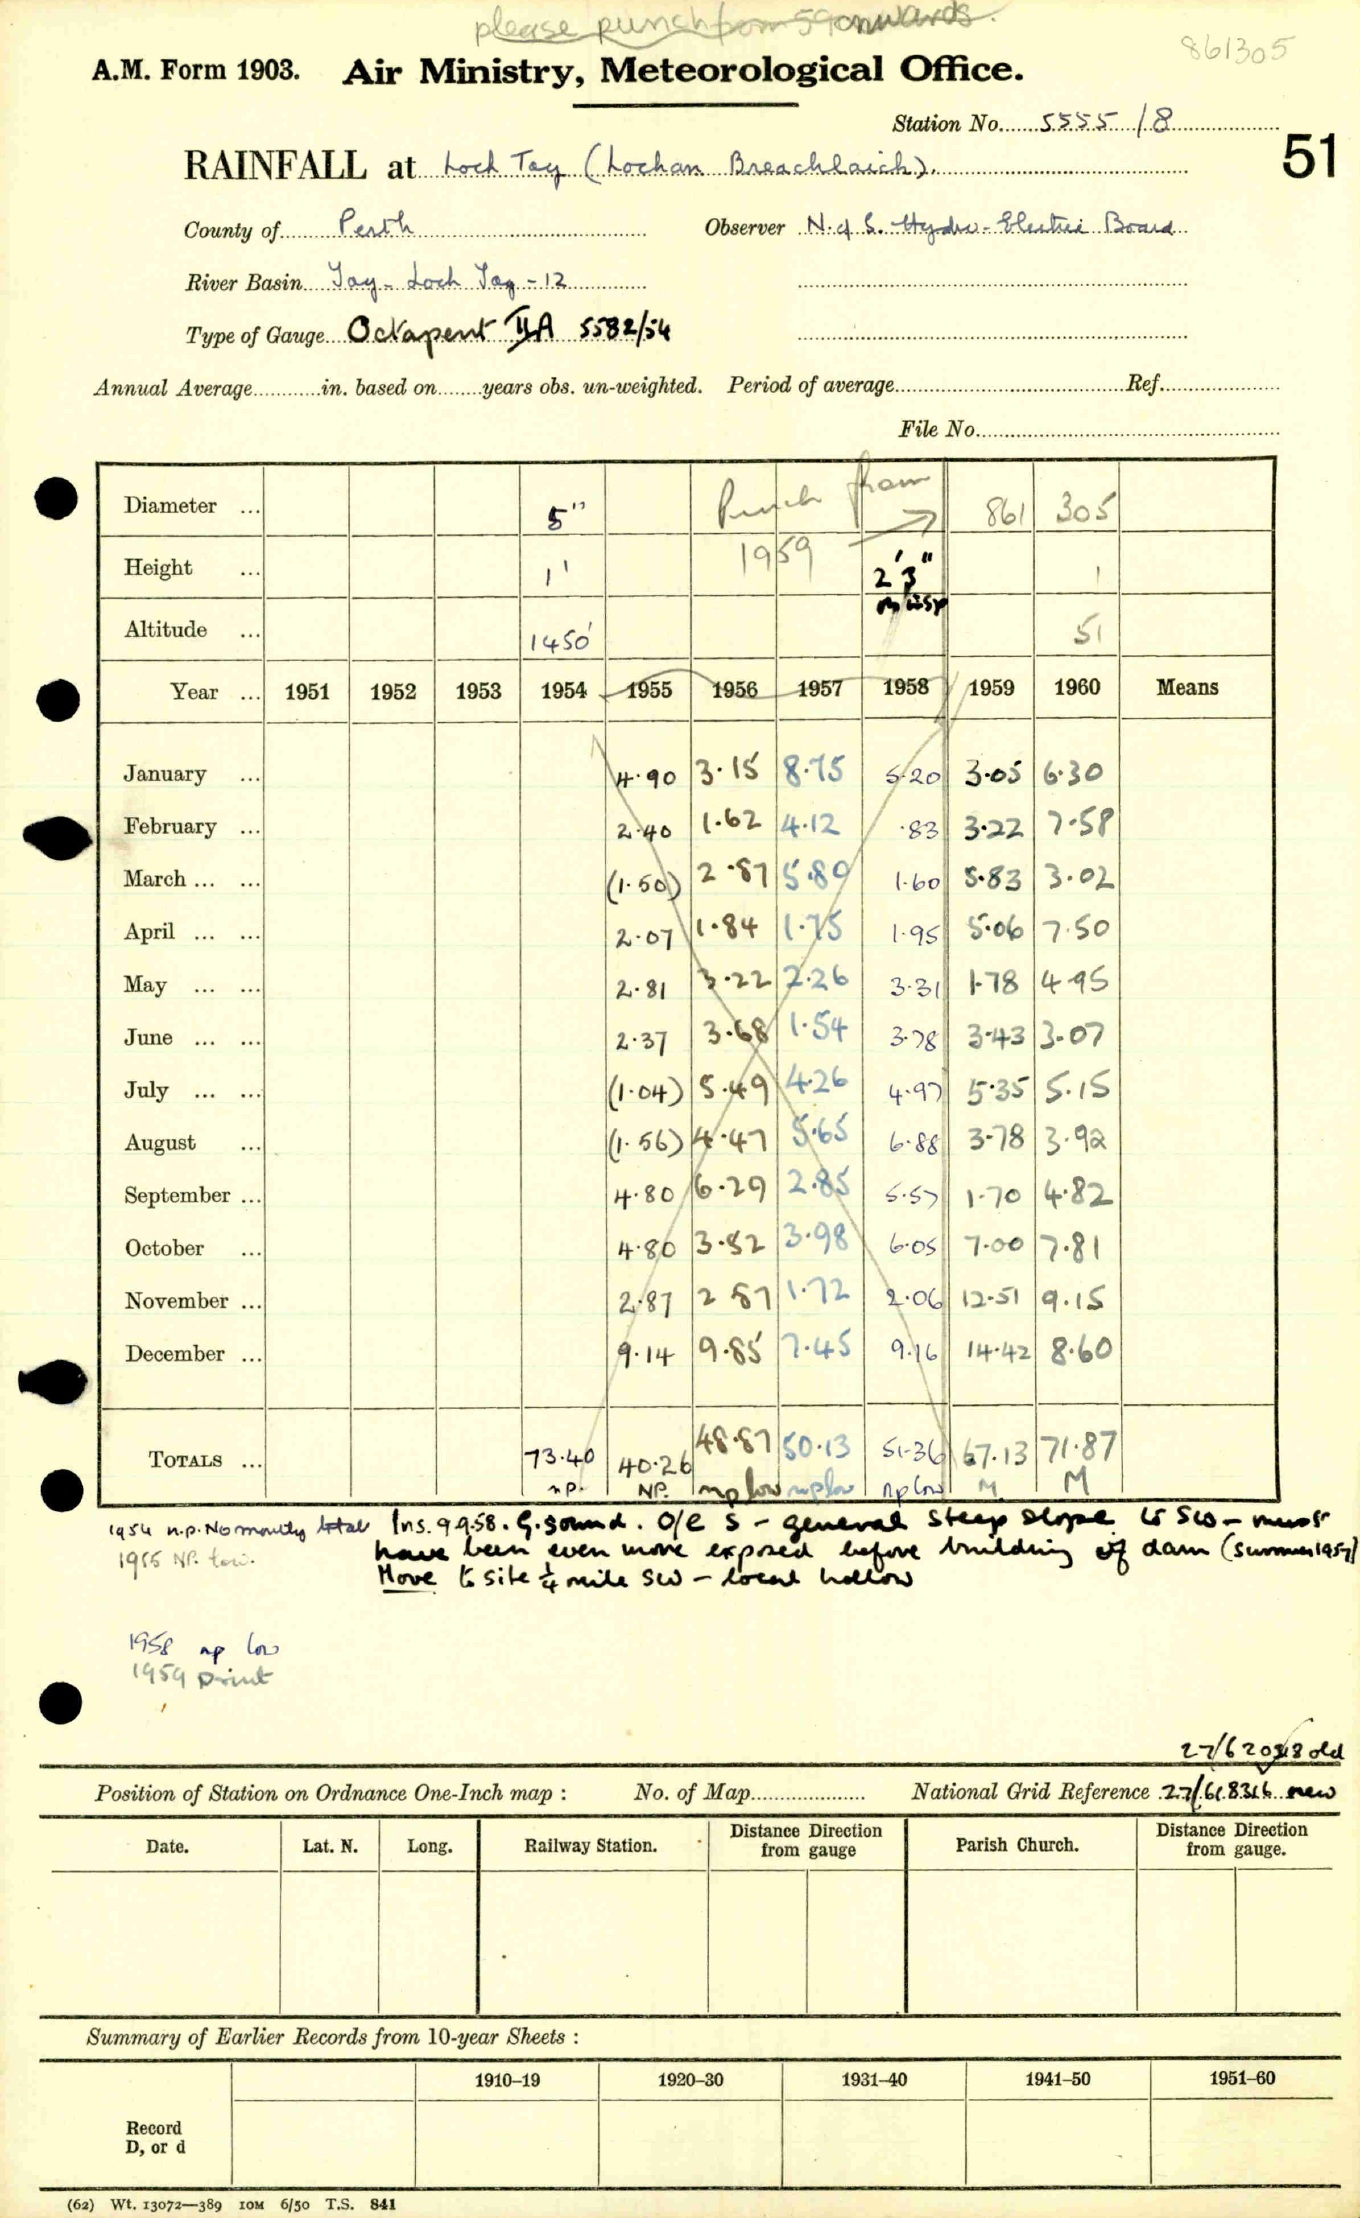 please punch from 59 onwards.
861305
A.M. Form 1903. Air Ministry, Meteorological Office.
Station No. 5555/8
51
RAINFALL at Loch Tay (Lochan Breachlaich).
County of Perth Observer N. of S. Hydro-Electric Board
River Basin Tay - Loch Tay - 12
Type of Gauge Octapent IIA 5582/54
Annual Average in. based on years obs. un-weighted. Period of average Ref.
File No.
Diameter ... 5" Punch from 861 305
Height ... 1' 1959 2'3" 1
Altitude ... 1450' 51
Year ... 1951 1952 1953 1954 1955 1956 1957 1958 1959 1960 Means
January ... 4.90 3.15 8.75 5.20 3.05 6.30
February ... 2.40 1.62 4.12 .83 3.22 7.58
March ... ... (1.50) 2.87 5.80 1.60 5.83 3.02
April ... ... 2.07 1.84 1.75 1.95 5.06 7.50
May ... ... 2.81 3.22 2.26 3.31 1.78 4.95
June ... ... 2.37 3.68 1.54 3.78 3.43 3.07
July ... ... (1.04) 5.49 4.26 4.97 5.35 5.15
August ... (1.56) 4.47 5.65 6.88 3.78 3.92
September ... 4.80 6.29 2.85 5.57 1.70 4.82
October ... 4.80 3.52 3.98 6.05 7.00 7.81
November ... 2.87 2 87 1.72 2.06 12.51 9.15
December ... 9.14 9.85 7.45 9.16 14.42 8.60
TOTALS ... 73.40 40.26 48.87 50.13 51.36 67.13 71.87
n.p. NP. np low np low np low M M
1954 n.p. No monthly total Ins. 9.9.58. G. sound. O/e S - general steep slope to SW - must
1955 NP. low. have been even more exposed before building of dam (Summer 1957)
Move to site ¼ mile SW - local hollow
1958 np low
1959 print
27/620318 old
Position of Station on Ordnance One-Inch map : No. of Map National Grid Reference 27/618316 new
Date. Lat. N. Long. Railway Station. Distance Direction from gauge Parish Church. Distance Direction from gauge.
Summary of Earlier Records from 10-year Sheets :
1910–19 1920–30 1931–40 1941–50 1951–60
Record
D, or d
(62) Wt. 13072—389 10M 6/50 T.S. 841